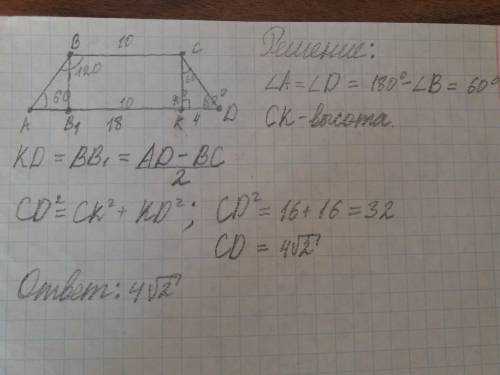 B 10 C
120
60
60
10
A B₁ 18 K 4 D
Решение:
∠A = ∠D = 180° - ∠B = 60°
CK - высота.
KD = BB₁ = AD - BC / 2
CD² = CK² + KD²; CD² = 16 + 16 = 32
CD = 4√2
Ответ: 4√2